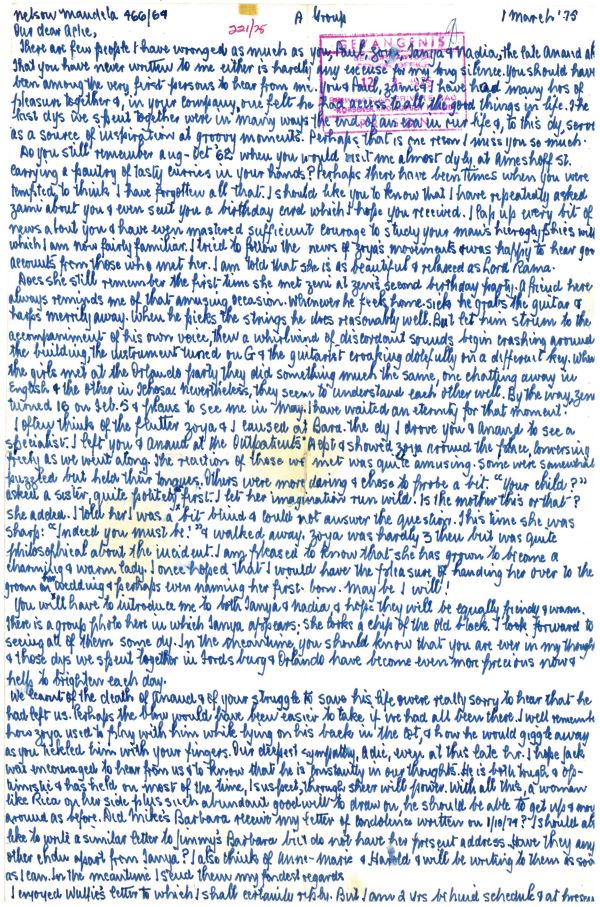 Nelson Mandela 466/64 A Group 1 March '75
221/75
Our dear Adie,
There are few people I have wronged as much as you, Paul, Zoya, Tanya & Nadia, the late Anand &
That you have never written to me either is hardly any excuse for my long silence. You should have
been among the very first persons to hear from me. You & Paul, Zami & I have had many hrs of
pleasure together &, in your company, one felt he had access to all the good things in life. The
last dys we spent together were in many ways the end of an era in our life &, to this dy, serve
as a source of inspiration at groovy moments. Perhaps that is one reason I miss you so much.
Do you still remember Aug-Oct '62 when you would visit me almost dyly at Ameshoff St.
carrying a pantry of tasty curries in your hands? Perhaps there have been times when you were
tempted to think I have forgotten all that. I should like you to know that I have repeatedly asked
Zami about you & even sent you a birthday card which I hope you received. I lap up every bit of
news about you & have even mastered sufficient courage to study your man's hieroglyphics with
which I am now fairly familiar. I tried to follow the news of Zoya's movements & was happy to hear good
accounts from those who met her. I am told that she is as beautiful & relaxed as Lord Rama.
Does she still remember the first time she met Zeni at Zeni's second birthday party. A friend here
always reminds me of that amusing occasion. Whenever he feels home-sick he grabs the guitar &
harps merrily away. When he picks the strings he does reasonably well. But let him strum to the
accompaniment of his own voice, then a whirlwind of discordant sounds begin crashing around
the building, the instrument tuned on G & the guitarist croaking dolefully on a different key. When
the girls met at the Orlando party they did something much the same, one chatting away in
English & the other in Xhosa. Nevertheless, they seem to understand each other well. By the way, Zeni
turned 16 on Feb. 5 & plans to see me in May. I have waited an eternity for that moment.
I often think of the flutter Zoya & I caused at Bara. the dy I drove you & Anand to see a
specialist. I left you & Anand at the Outpatients' Dept & showed Zoya around the place, conversing
freely as we went along. The reaction of those we met was quite amusing. Some were somewhat
puzzled but held their tongues. Others were more daring & chose to probe a bit. "Your child?"
asked a sister, quite politely first. I let her imagination run wild. Is the mother this or that?
she added. I told her I was a bit blind & could not answer the question. This time she was
sharp: "Indeed you must be!" & walked away. Zoya was hardly 3 then but was quite
philosophical about the incident. I am pleased to know that she has grown to become a
charming & warm lady. I once hoped that I would have the pleasure of handing her over to the
groom on her wedding & perhaps even naming her first-born. May be I will!
You will have to introduce me to both Tanya & Nadia & hope they will be equally friendly & warm.
There is a group photo here in which Tanya appears. She looks a chip of the old block. I look forward to
seeing all of them some dy. In the meantime, you should know that you are ever in my thoughts
& those dys we spent together in Fordsburg & Orlando have become even more precious now &
help to brighten each day.
We learnt of the death of Anand & of your struggle to save his life & were really sorry to hear that he
had left us. Perhaps the blow would have been easier to take if we had all been there. I well remember
how Zoya used to play with him while lying on his back in the cot, & how he would giggle away
as you tickled him with your fingers. Our deepest sympathy, Adie, even at this late hr. I hope Jack
was encouraged to hear from us & to know that he is constantly in our thoughts. He is both tough & op-
timistic & has held on most of the time, I suspect, through sheer will power. With all this, a woman
like Rica on his side plus such abundant goodwill to draw on, he should be able to get up & move
around as before. Did Mike's Barbara receive my letter of condolence written on 1/10/74? I should also
like to write a similar letter to Jimmy's Barbara but do not have her present address. Have they any
other chdn apart from Tanya? I also think of Anne-Marie & Harold & will be writing to them as soon
as I can. In the meantime I send them my fondest regards.
I enjoyed Wulfie's letter to which I shall certainly reply. But I am 2 yrs behind schedule & at present